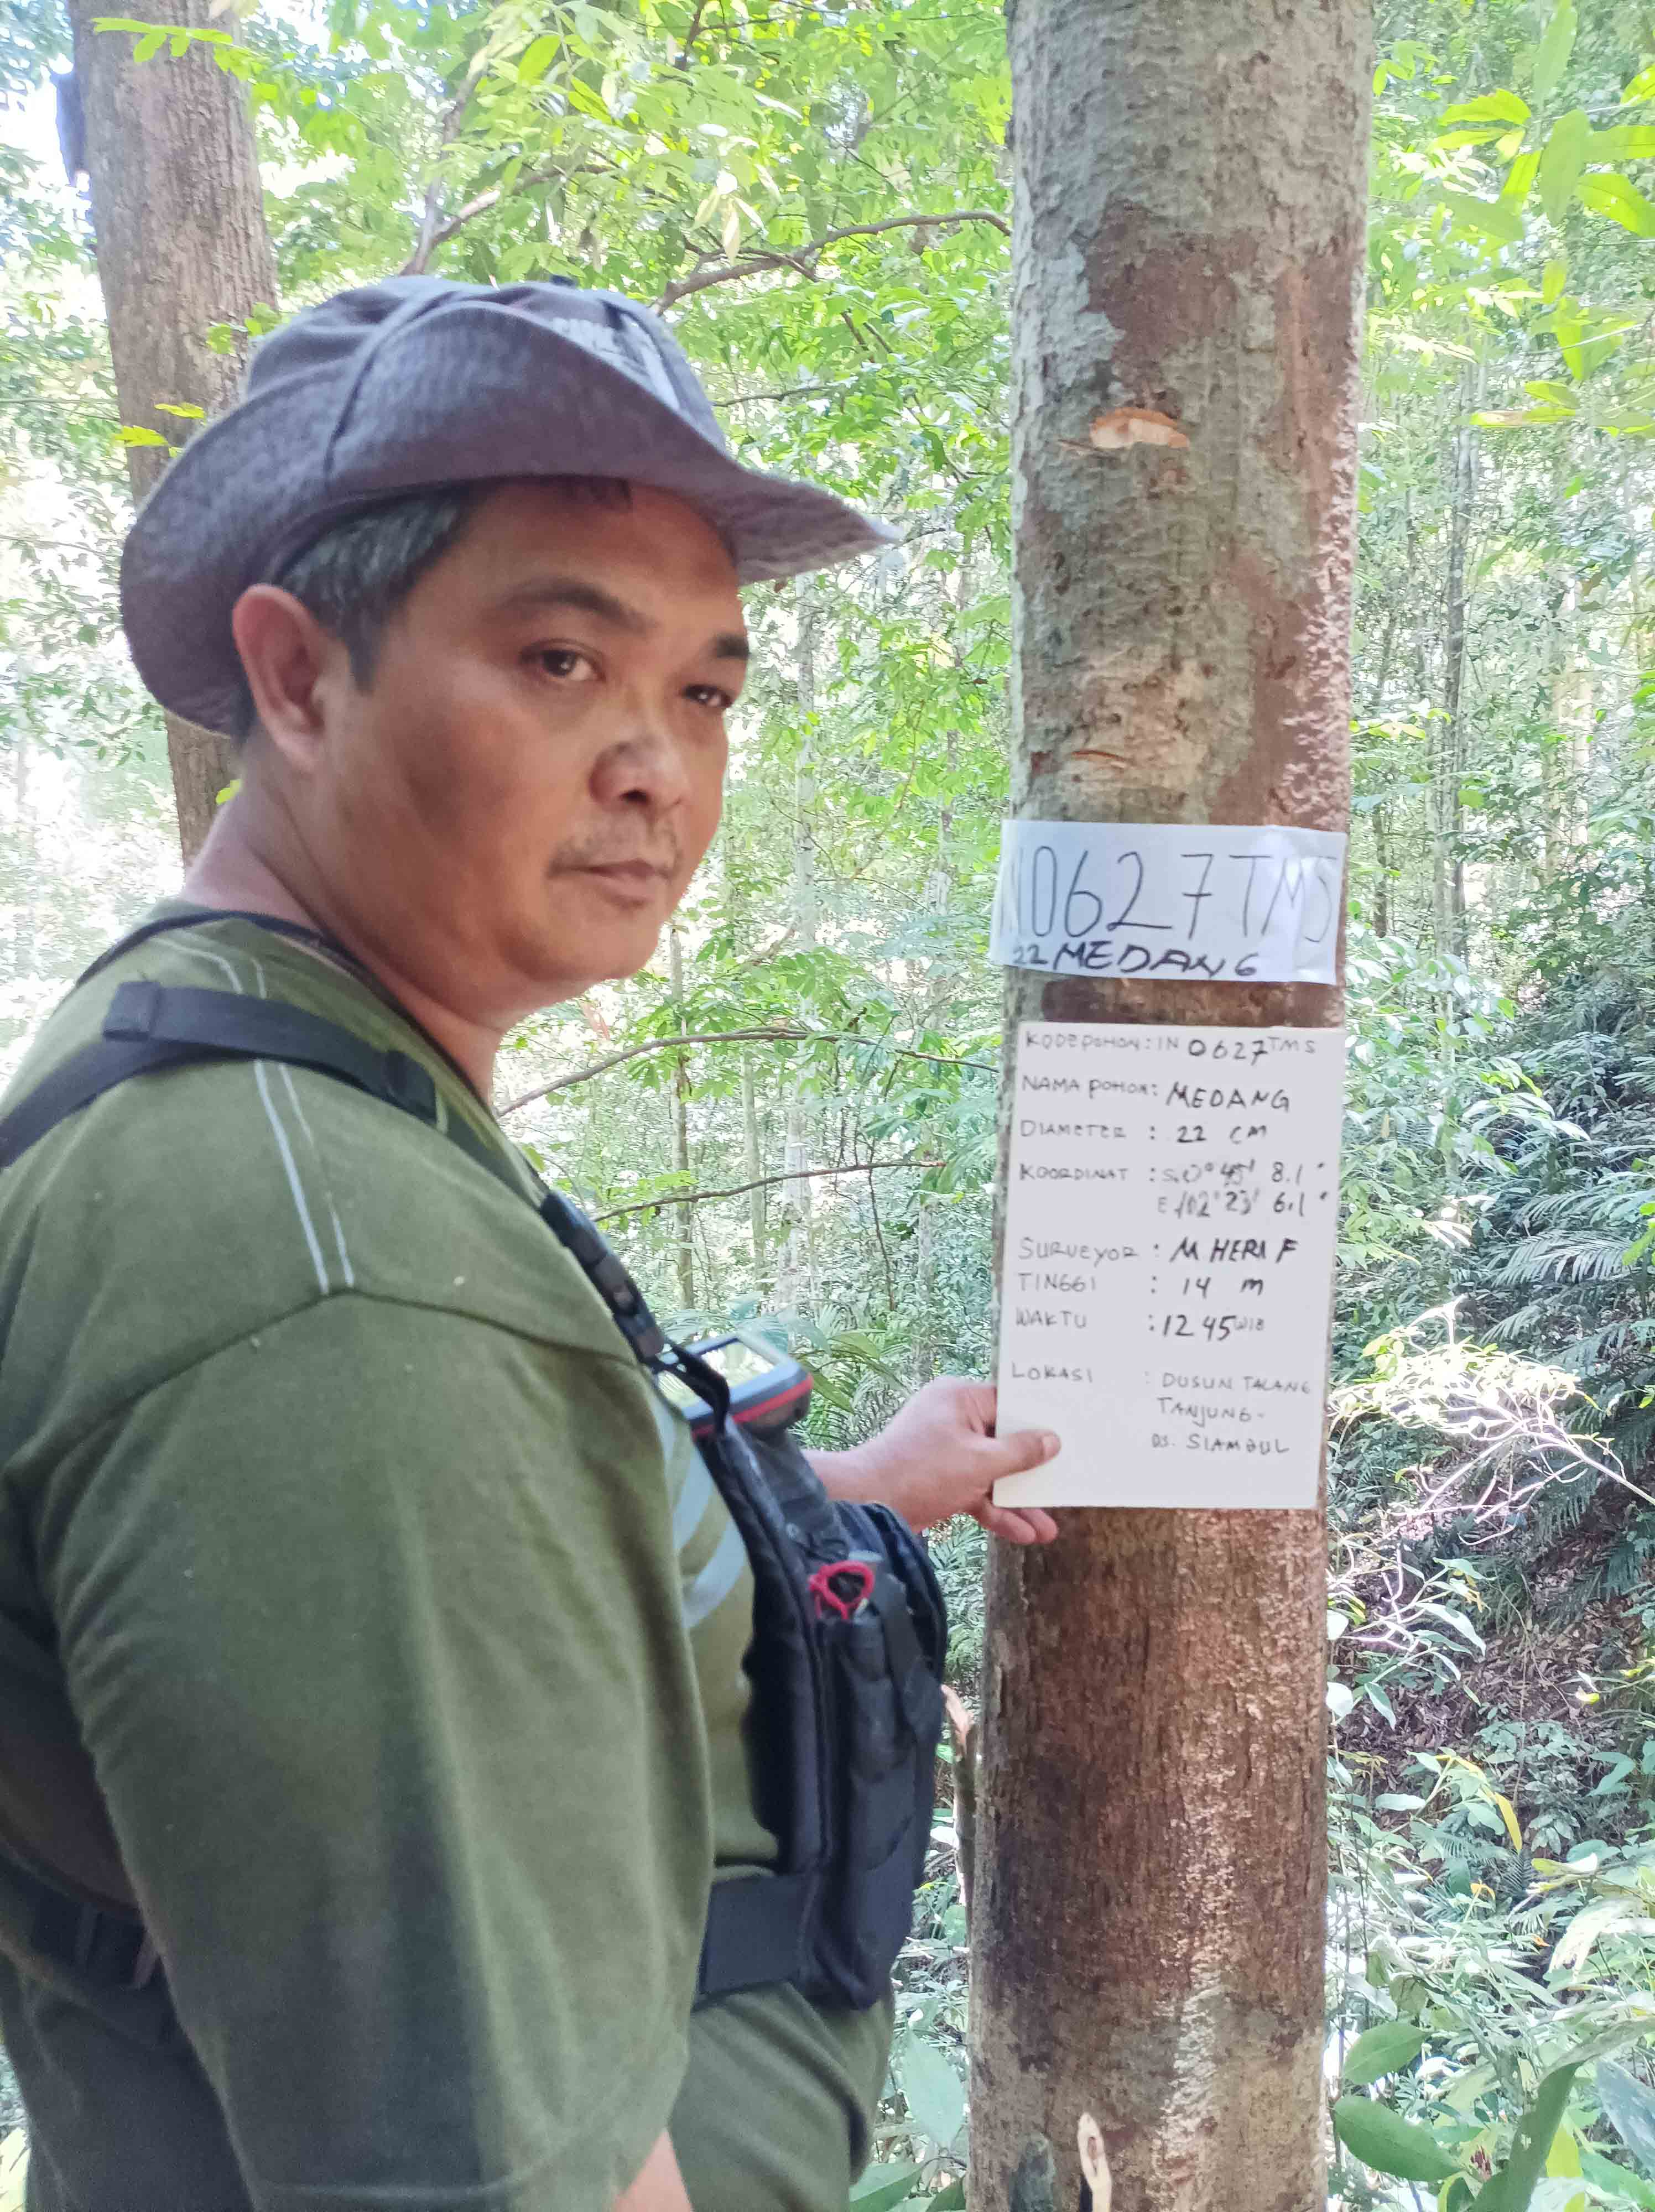 N0627TMS
22 MEDANG
KODE POHON : IN 0627 TMS
NAMA POHON : MEDANG
DIAMETER : 22 CM
KOORDINAT : S.0° 45' 8.1"
E 102° 23' 6.1"
SURVEYOR : M HERI F
TINGGI : 14 M
WAKTU : 12 45 WIB
LOKASI : DUSUN TALANG
TANJUNG-
DS. SIAMBUL